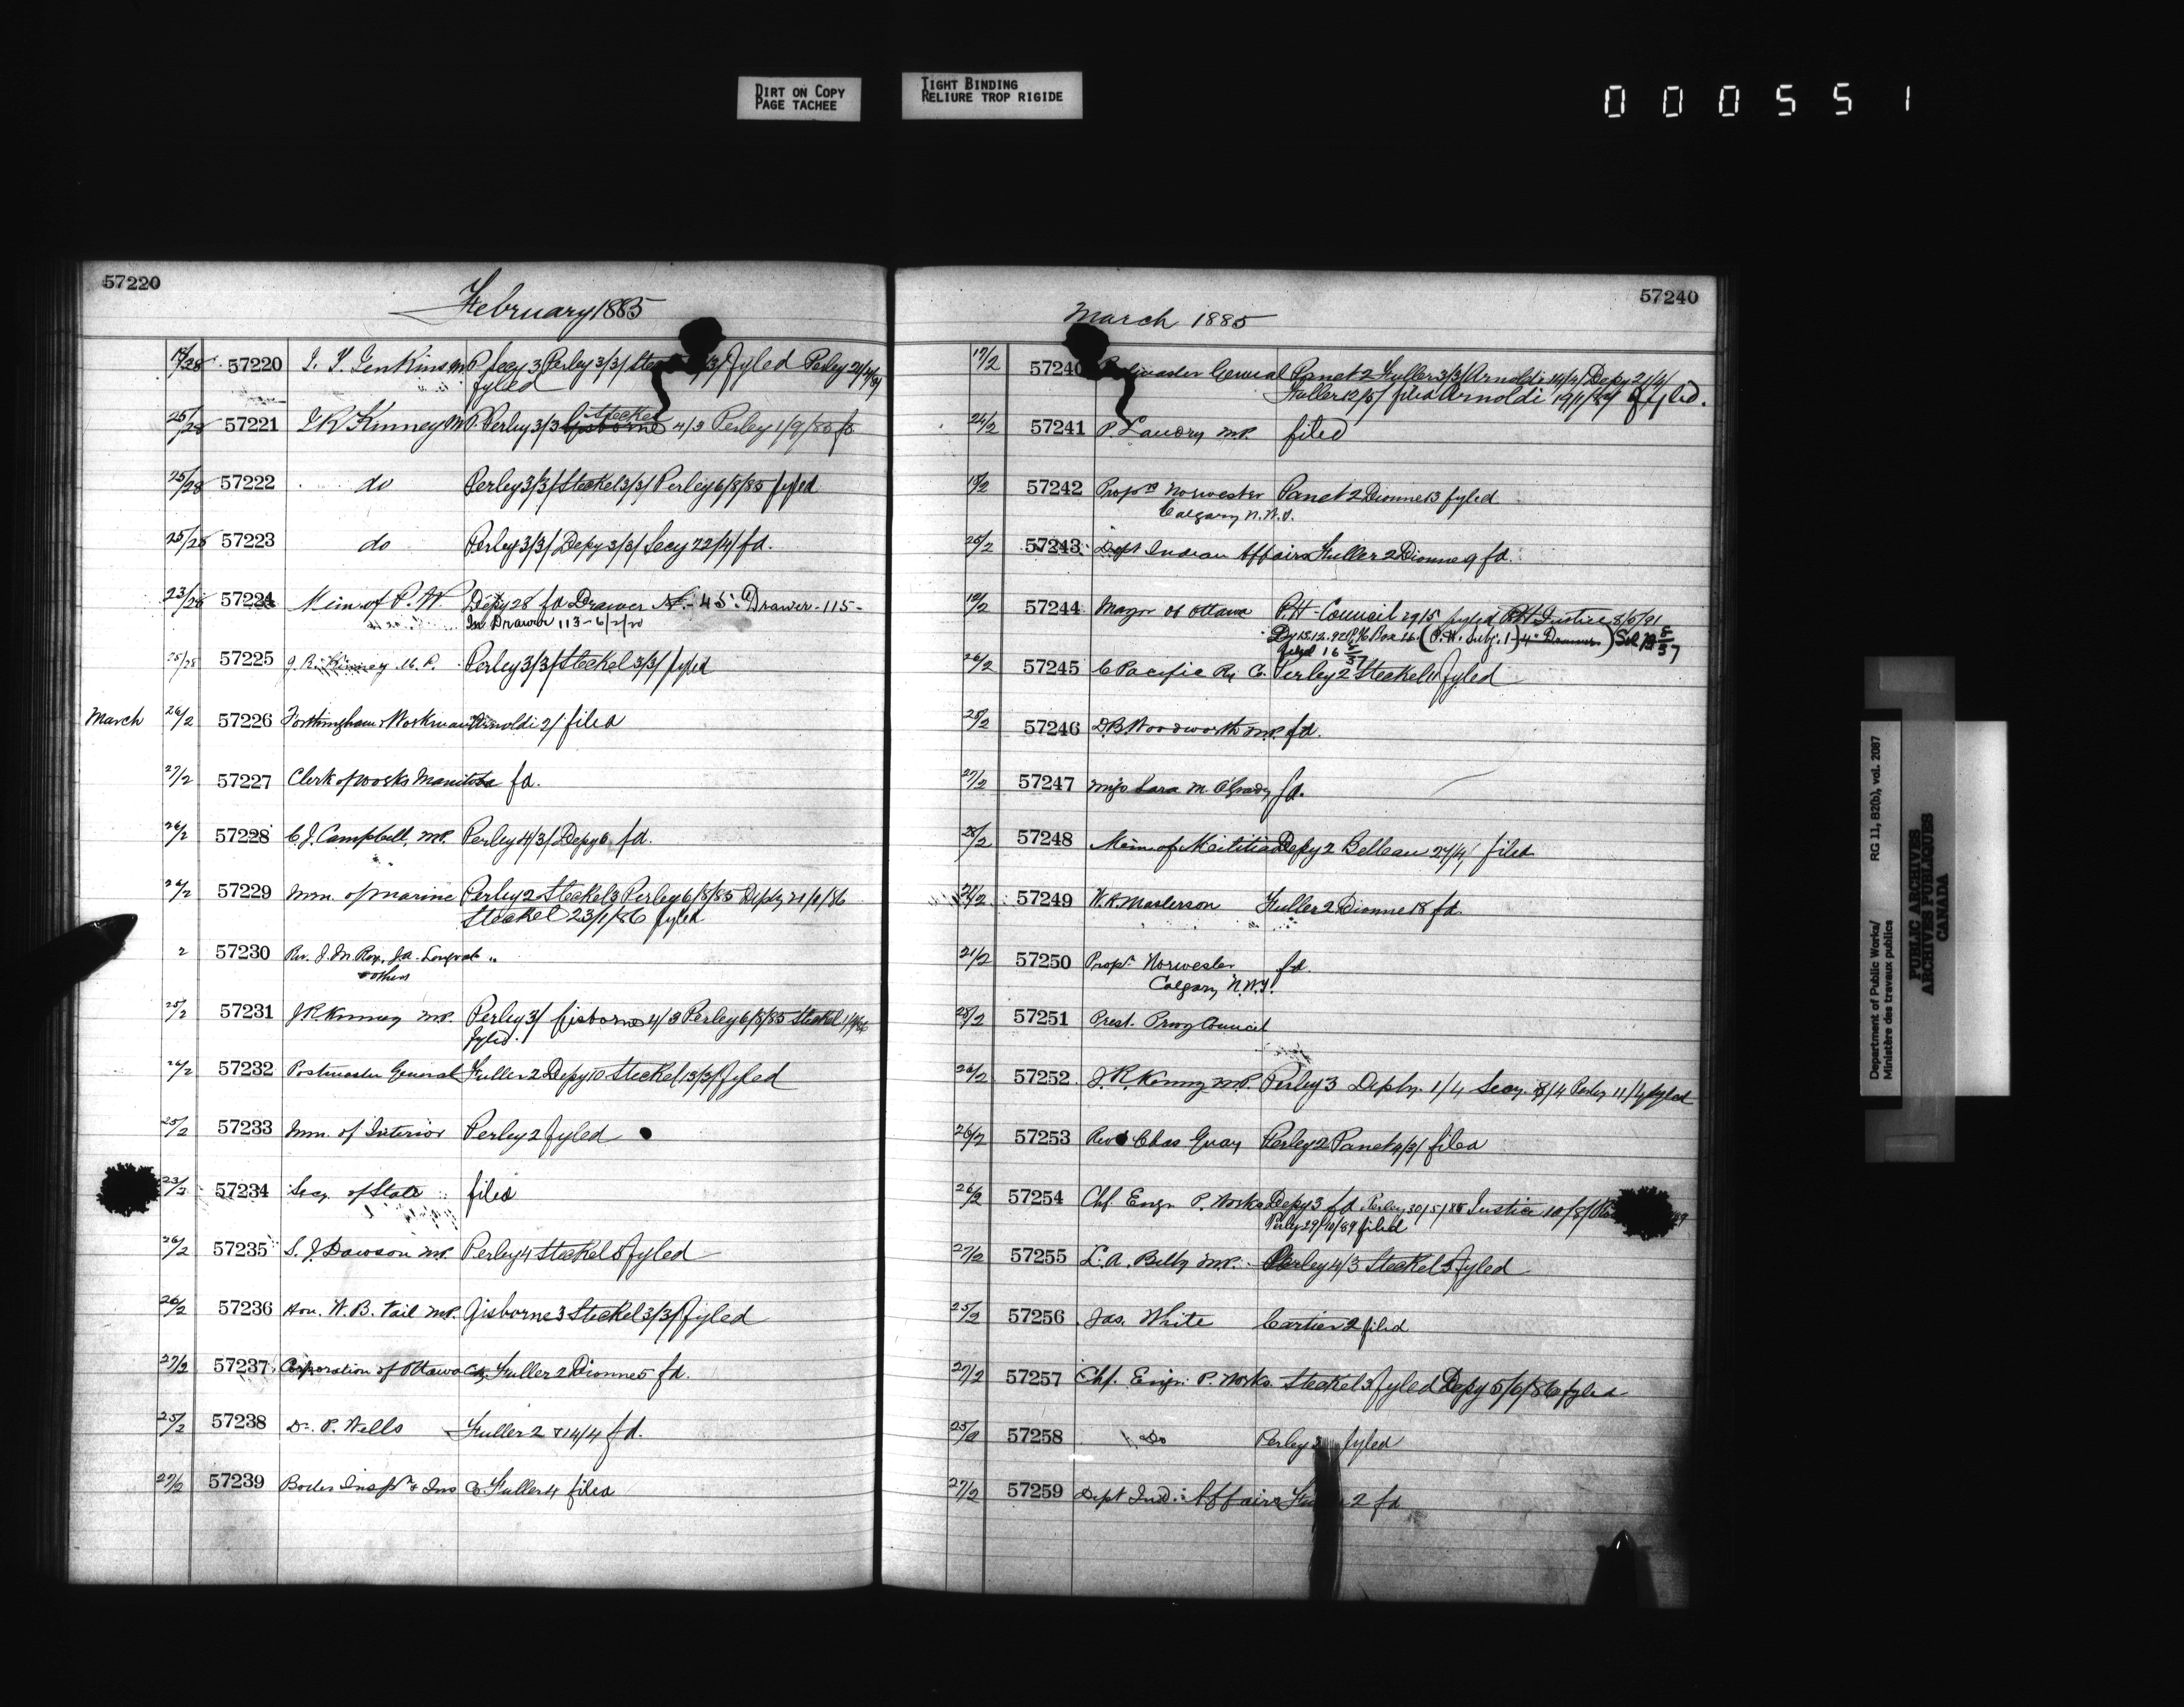 DIRT ON COPY
PAGE TACHEE
TIGHT BINDING
RELIURE TROP RIGIDE
000551
57220
February 1885
57220 Jenkins M.P. Secy 3 Perley 3/3/ fyled Perley
fyled
25/28 57221 J R Kinney M.P. Perley 3/3 Steckel 4/3 Perley 1/9/85
25/28 57222 do Perley 3/3/ Steckel 3/3/ Perley 6/8/85 fyled
25/28 57223 do Perley 3/3/ Depy 3/3/ Secy 22/4/ fd.
23/28 57224 Min. of P. W. Depy 28 fd Drawer Drawer-115-
In Drawer 113-
25/28 57225 J. R. Kinney M.P. Perley 3/3/ Steckel 3/3/ fyled
March 26/2 57226 Workman Arnoldi 2/ filed
27/2 57227 Clerk of works Manitoba fd.
26/2 57228 C. J. Campbell, M.P. Perley 4/3/ Depy 6 fd.
26/2 57229 Min. of Marine Perley 2 Steckel 3 Perley 6/8/85 Depty 21/1/86
Steckel 23/1/86 fyled
2 57230 Rev. J. M. Roy, J.A.
& others
25/2 57231 J R Kinney M.P. Perley 3/ Gisborne 4/3 Perley 6/8/85 Steckel
fyled.
26/2 57232 Postmaster General Fuller 2 Depy 10 Steckel 13/3/ fyled
25/2 57233 Min. of Interior Perley 2 fyled
23/2 57234 Secy. of State filed
26/2 57235 S. J. Dawson M.P. Perley 4 Steckel 5 fyled
26/2 57236 Hon. W. B. Vail M.P. Gisborne 3 Steckel 3/3/ fyled
27/2 57237 Corporation of Ottawa Fuller 2 Dionne 5 fd.
25/2 57238 Dr. P. Wells Fuller 2 & 14/4 fd.
27/2 57239 Boiler Insp & Ins Co Fuller 4 filed
57240
March 1885
17/2 57240 Postmaster General Panet 2 Fuller 3/3/ Arnoldi 14/4/ Depy 21/4/
Fuller 12/5/ filed Arnoldi fyled.
26/2 57241 P. Landry M.P. filed
18/2 57242 Propr Norwester Panet 2 Dionne 13 fyled
Calgary N.W.T.
25/2 57243 Dept Indian Affairs Fuller 2 Dionne 9 fd.
12/2 57244 Mayor of Ottawa P.H. Council 29/5 fyled P.H. Justice 8/5/91
26/2 57245 C Pacific Ry Co. Perley 2 Steckel fyled
25/2 57246 D.B. Woodworth M.P. fd.
27/2 57247 Miss Sara M. O'Grady fd.
28/2 57248 Min. of Militia Depy 2 Belleau 27/4/ filed
57249 W. R. Masterson Fuller 2 Dionne 18 fd.
21/2 57250 Propr Norwester fd.
Calgary N.W.T.
25/2 57251 Prest. Privy Council
26/2 57252 J. R. Kinney M.P. Perley 3 Depty. 1/4 Secy. 8/4 Perley 11/4 fyled
26/2 57253 Revd Chas Guay Perley 2 Panet 4/3/ filed
26/2 57254 Chf. Engr. P. Works Depy 3 fd. Perley 30/5/88 Justice 10/8/
Perley 29/10/89 filed
27/2 57255 L. A. Billy M.P. Perley 4/3 Steckel 5 fyled
25/2 57256 Jas. White Cartier 2 filed
27/2 57257 Chf. Engr. P. Works Steckel 3 fyled Depy 5/6/86 fyled
25/2 57258 Do Perley fyled
27/2 57259 Dept Ind. Affairs 2 fd
Department of Public Works/ RG 11, B2(b), vol. 2087
Ministère des travaux publics
PUBLIC ARCHIVES
ARCHIVES PUBLIQUES
CANADA